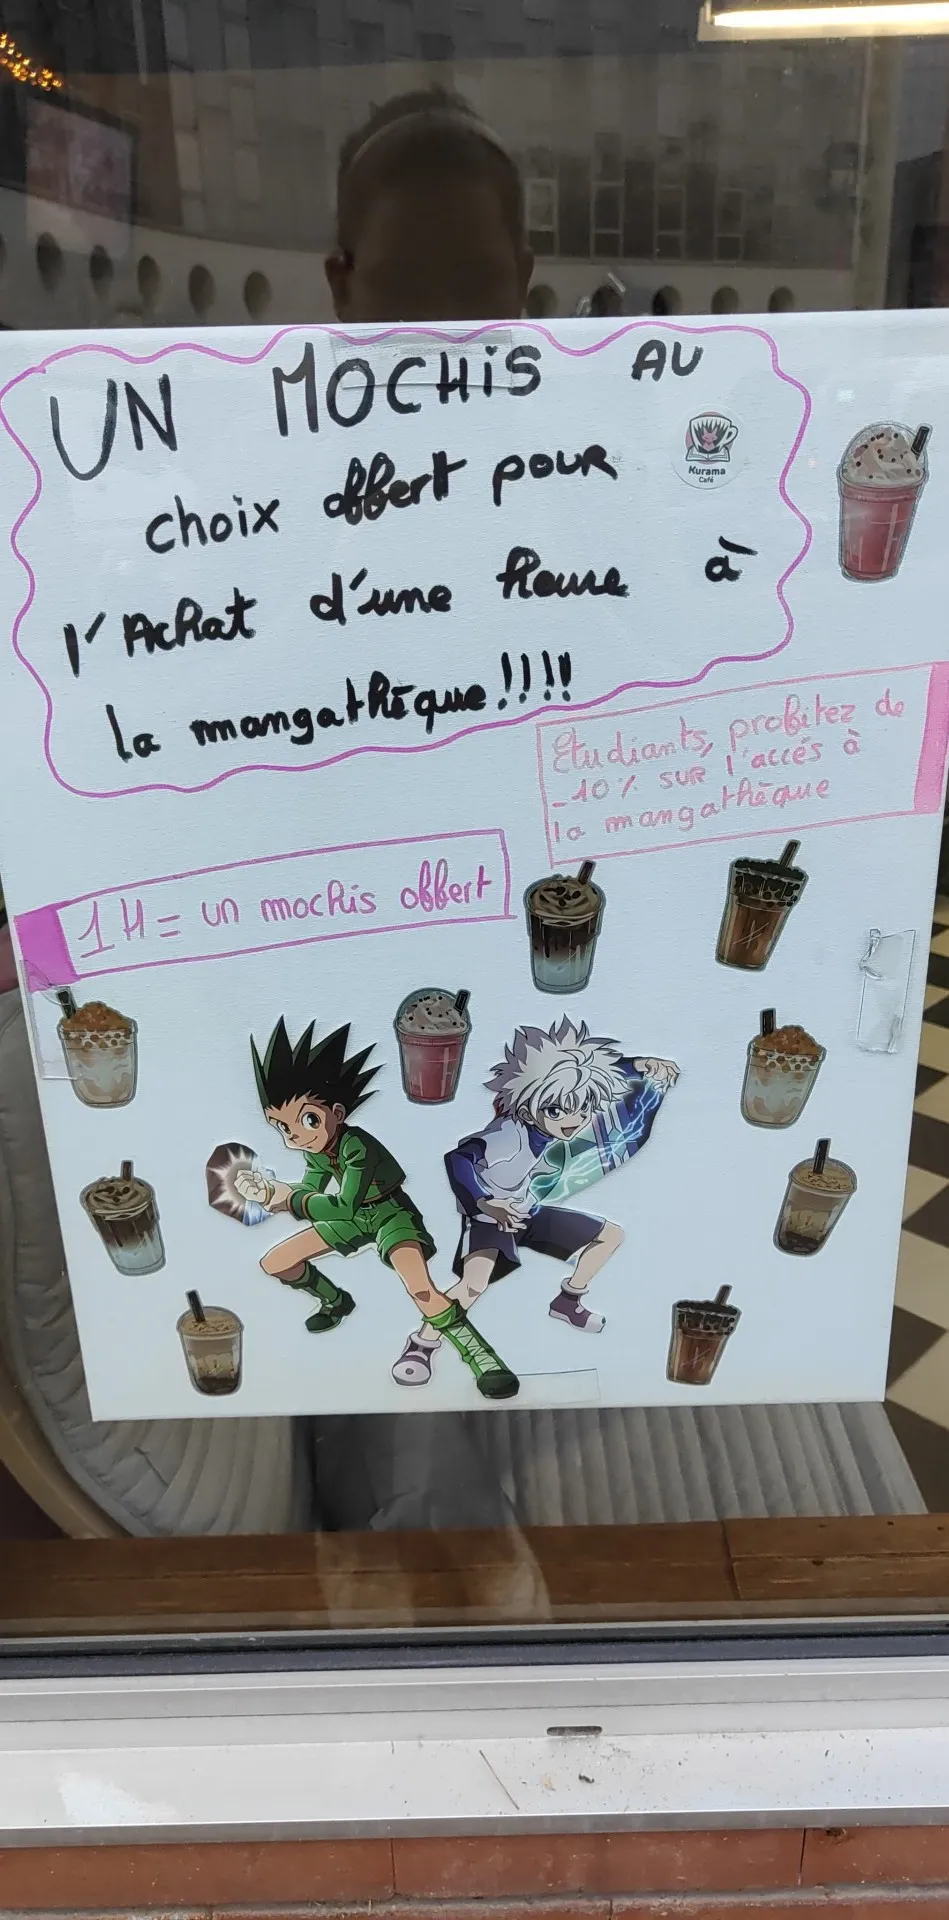 UN MOCHIS AU
choix offert pour
l'Achat d'une heure à
la mangathèque!!!!
Kurama
Café
Etudiants, profitez de
-10% SUR l'accés à
la mangathèque
1H = un mochis offert